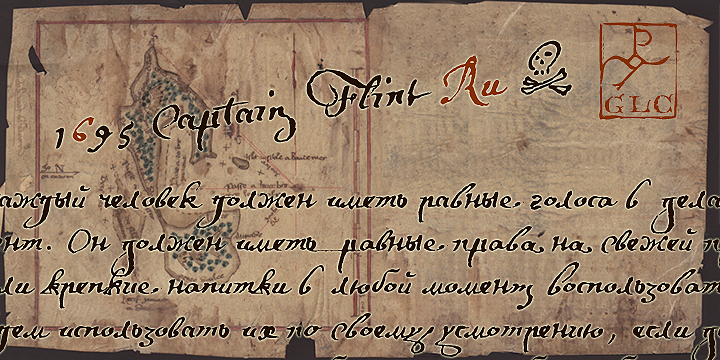 1695 Captain Flint Ru
GLC
аждый человек должен иметь равные голоса в дела
ент. Он должен иметь равные права на свежей п
ли крепкие напитки в любой момент воспользоват
дем использовать их по своему усмотрению, если д